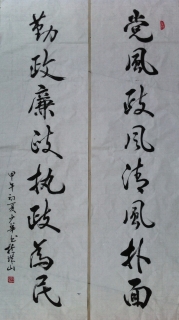 党风政风清风扑面
勤政廉政执政为民
甲午初夏